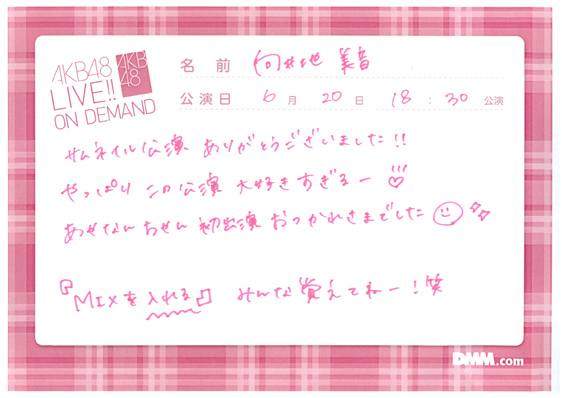 AKB48
LIVE!!
ON DEMAND
AKB
48
名 前 向井地 美音
公演日 6 月 20 日 18 : 30 公演
サムネイル公演 ありがとうございました!!
やっぱり この公演 大好きすぎるー♡
初出演 おつかれさまでした
『MIXを入れる』 みんな覚えてねー!笑
DMM.com